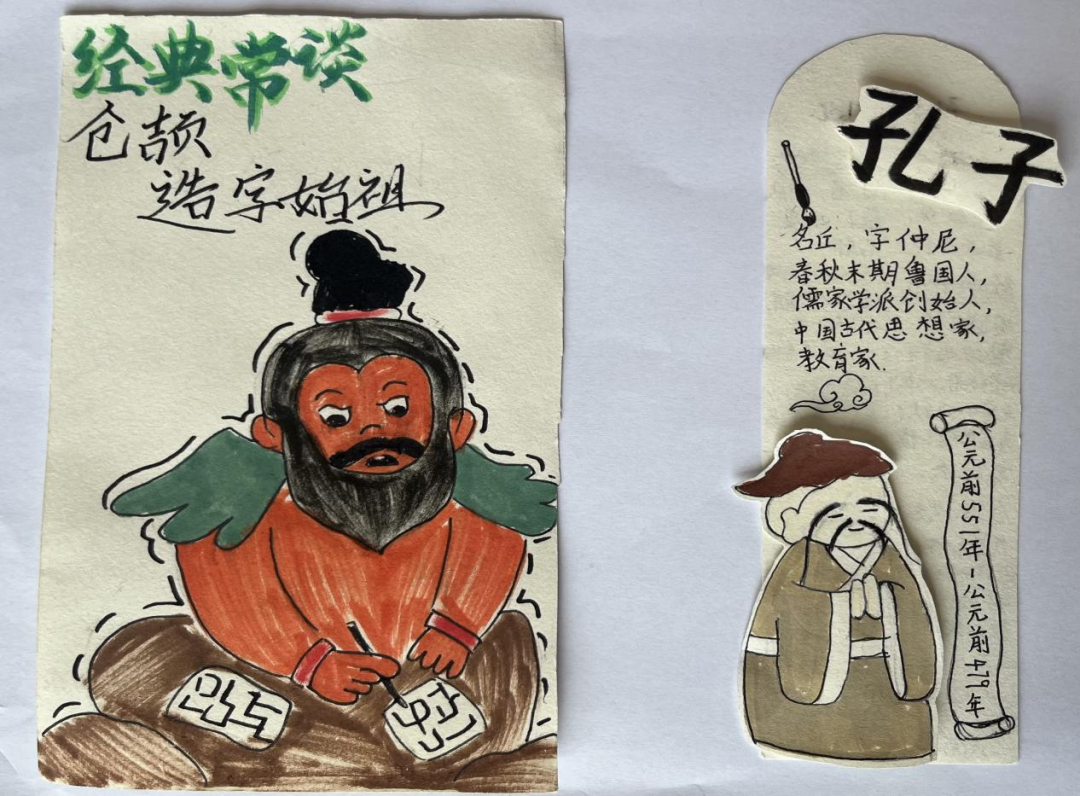 经典常谈
仓颉
造字始祖
孔子
名丘，字仲尼，
春秋末期鲁国人，
儒家学派创始人，
中国古代思想家，
教育家.
公元前551年-公元前479年